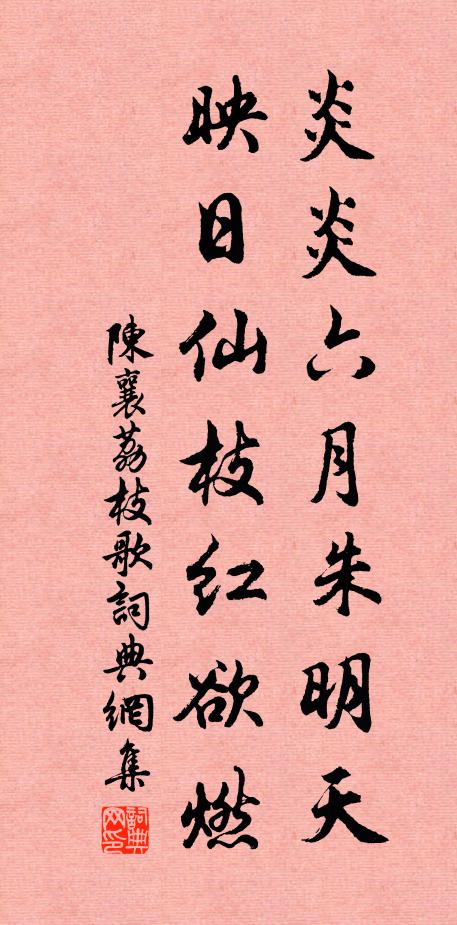 炎炎六月朱明天
映日仙枝红欲燃
陳襄荔枝歌詞典網集
詞典网印